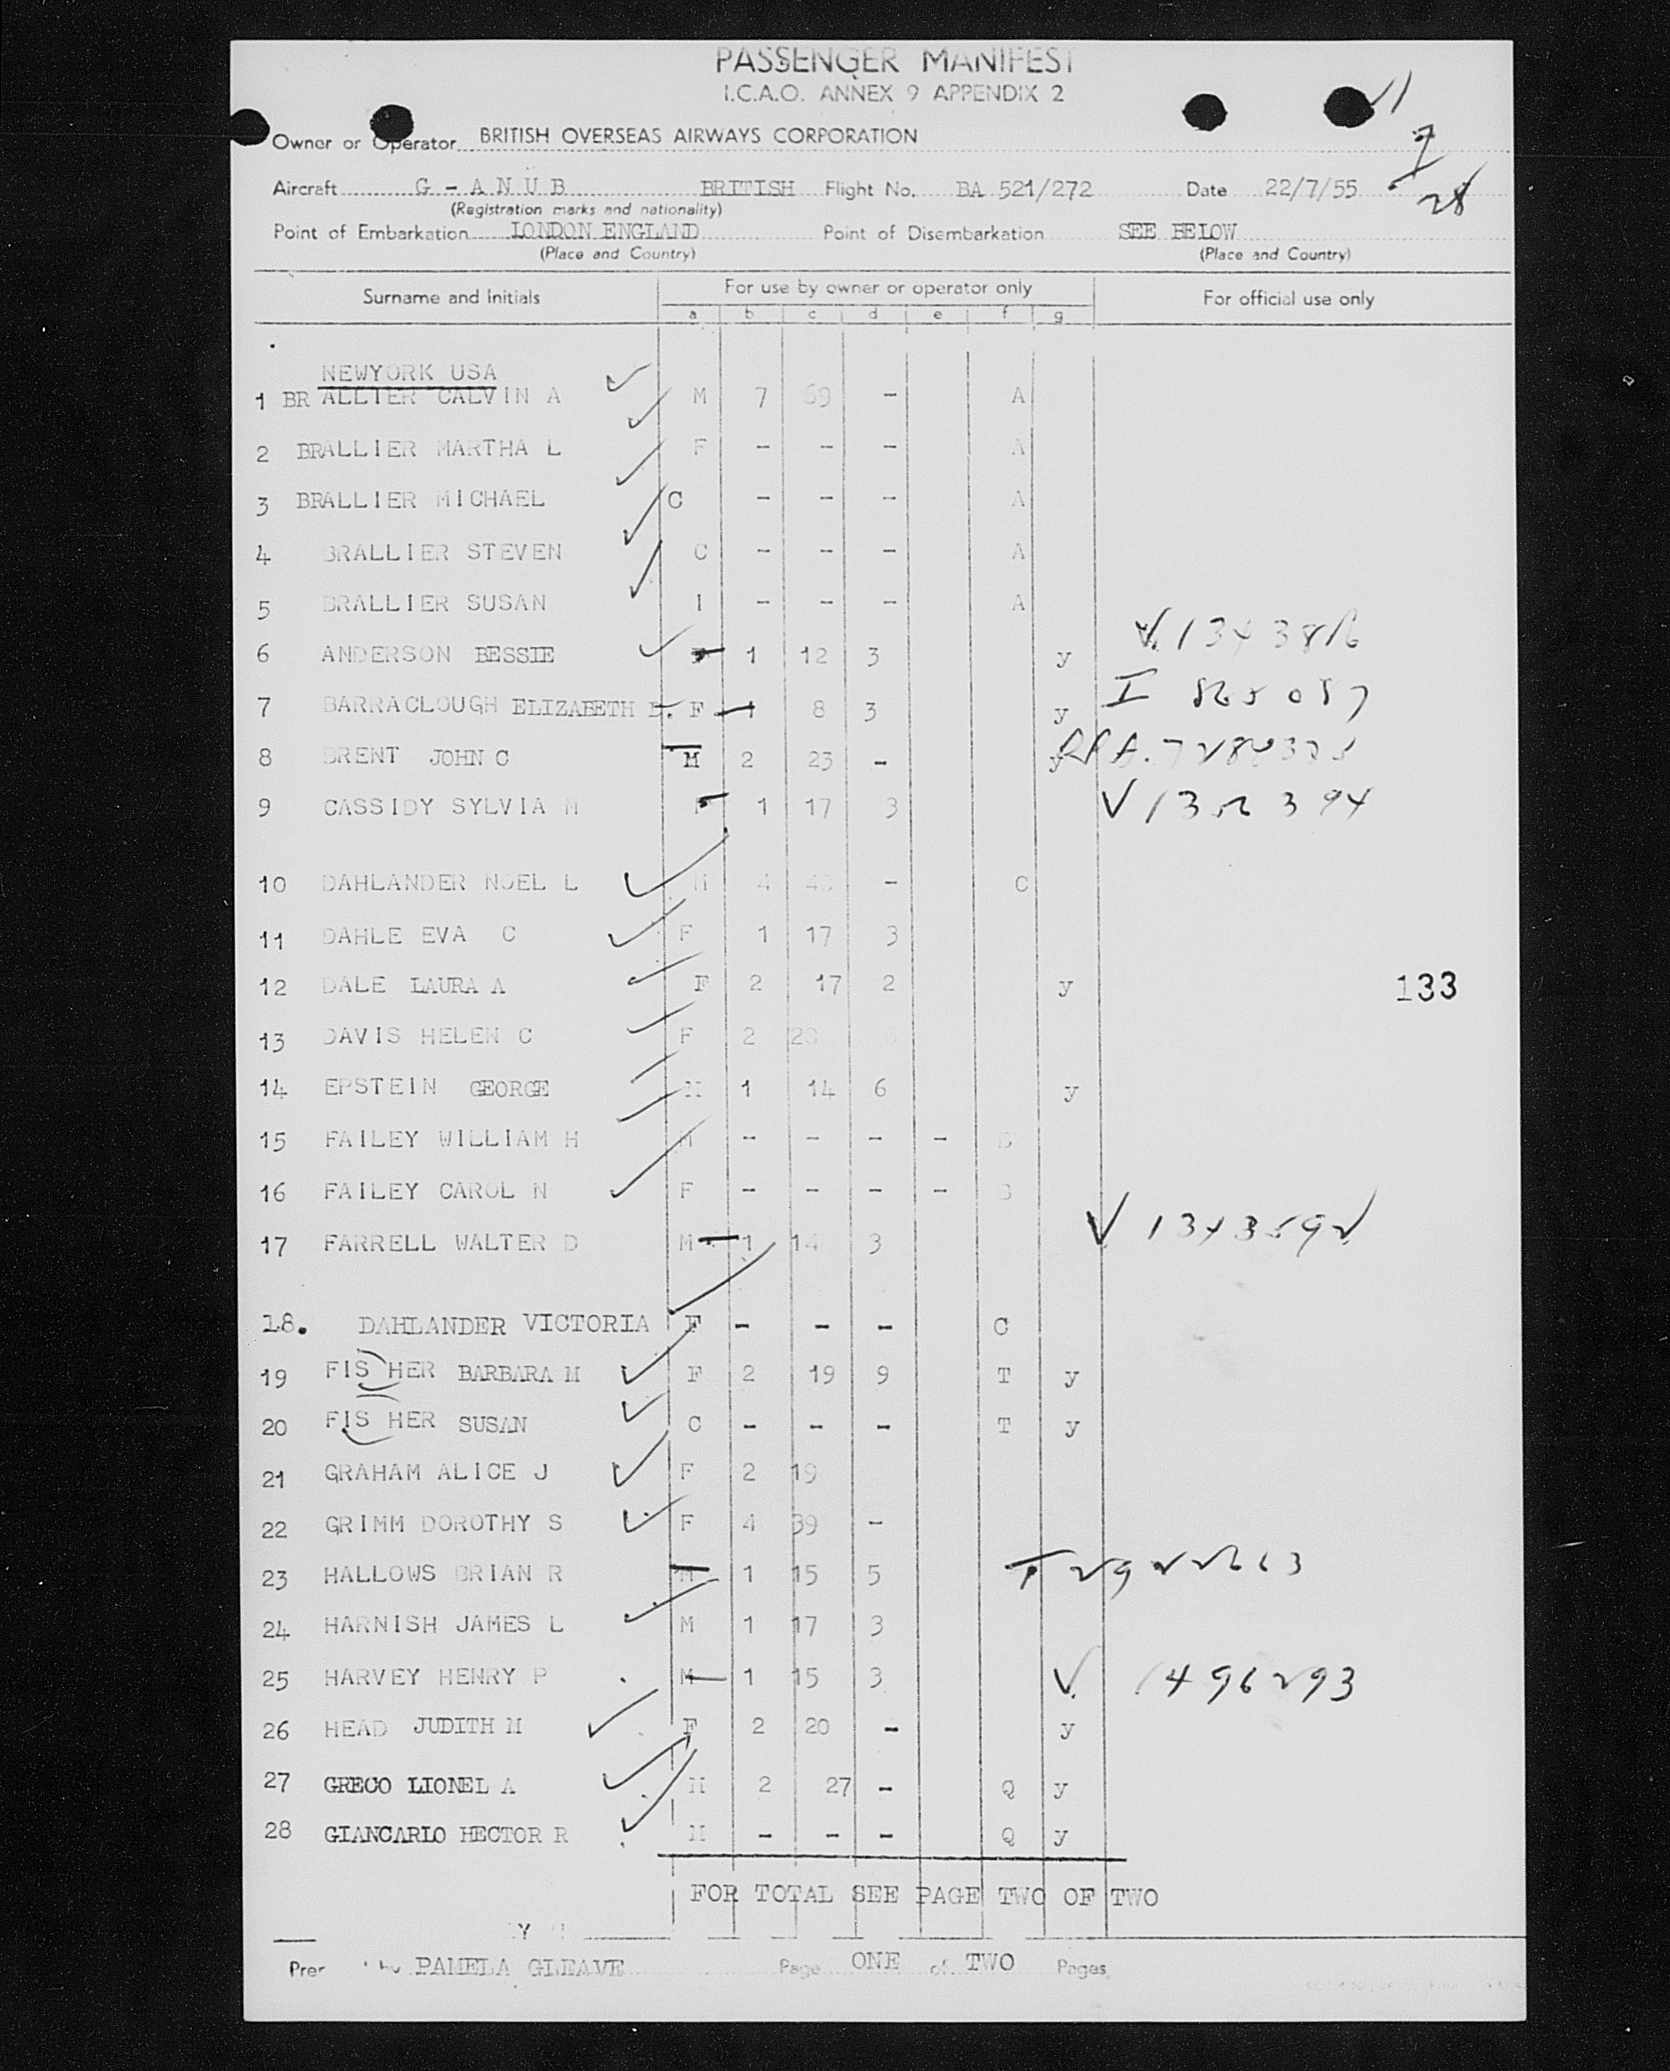 PASSENGER MANIFEST
I.C.A.O. ANNEX 9 APPENDIX 2
11
Owner or Operator BRITISH OVERSEAS AIRWAYS CORPORATION
7
28
Aircraft G - A N U B BRITISH Flight No. BA 521/272 Date 22/7/55
(Registration marks and nationality)
Point of Embarkation LONDON ENGLAND Point of Disembarkation SEE BELOW
(Place and Country) (Place and Country)
Surname and Initials For use by owner or operator only For official use only
a b c d e f g
NEWYORK USA
1 BR ALLIER CALVIN A M 7 69 - A
2 BRALLIER MARTHA L F - - - A
3 BRALLIER MICHAEL C - - - A
4 BRALLIER STEVEN C - - - A
5 BRALLIER SUSAN I - - - A
6 ANDERSON BESSIE 1 12 3 y V.
7 BARRACLOUGH ELIZABETH F 1 8 3 y I
8 BRENT JOHN C M 2 23 - y
9 CASSIDY SYLVIA M F 1 17 3 V
10 DAHLANDER NOEL L M 4 - C
11 DAHLE EVA C F 1 17 3
12 DALE LAURA A F 2 17 2 y 133
13 DAVIS HELEN C F 2
14 EPSTEIN GEORGE M 1 14 6 y
15 FAILEY WILLIAM H M - - - -
16 FAILEY CAROL N F - - - -
17 FARRELL WALTER D M 1 14 3 V
18. DAHLANDER VICTORIA F - - - C
19 FIS HER BARBARA M F 2 19 9 T y
20 FIS HER SUSAN C - - - T y
21 GRAHAM ALICE J F 2 19
22 GRIMM DOROTHY S F 4 39 -
23 HALLOWS BRIAN R M 1 15 5
24 HARNISH JAMES L M 1 17 3
25 HARVEY HENRY P M 1 15 3 V. 1496293
26 HEAD JUDITH M F 2 20 - y
27 GRECO LIONEL A M 2 27 - Q y
28 GIANCARLO HECTOR R M - - - Q y
FOR TOTAL SEE PAGE TWO OF TWO
PAMELA GLEAVE Page ONE of TWO Pages